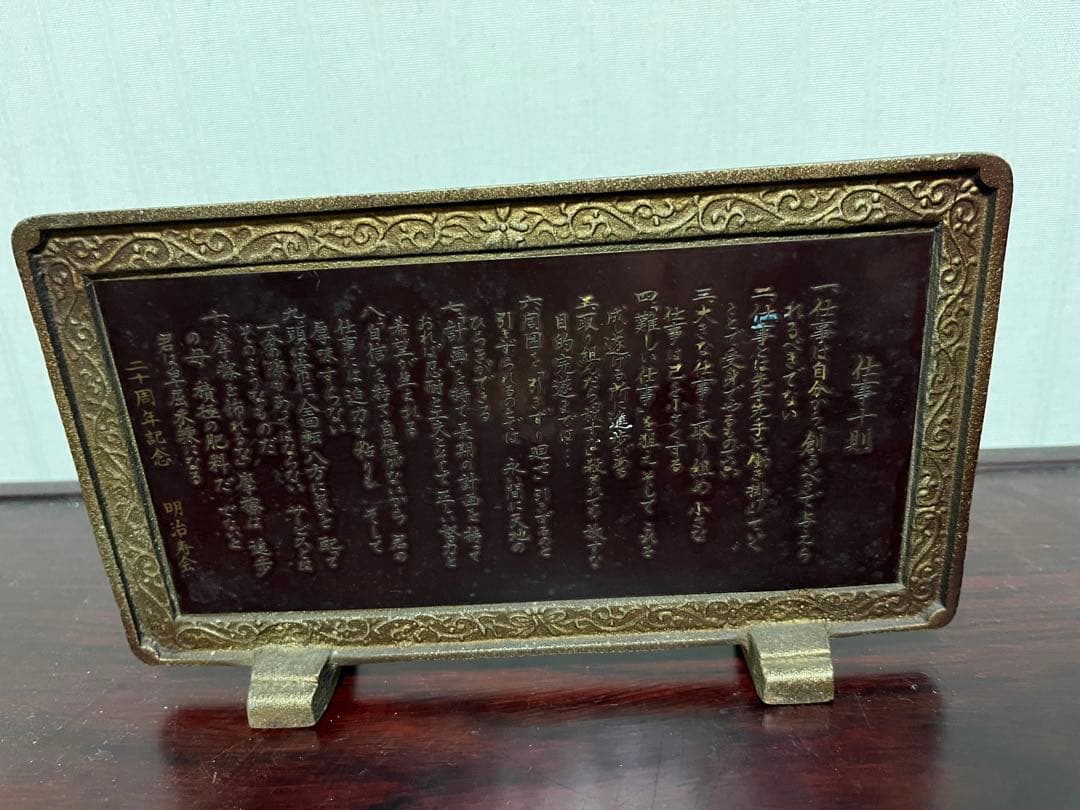 仕事十則
一 仕事は自分から創るべきで与えら
れるべきでない
二 仕事とは先手先手と働き掛けていく
ことで受身でやるものでない
三 大きな仕事と取り組め 小さな
仕事は己を小さくする
四 難しい仕事を狙え そしてこれを
成し遂げる所に進歩がある
五 取り組んだら放すな 殺されても放すな
目的完遂までは…
六 周囲を引きずり廻せ 引きずるのと
引きずられるのとでは 永い間に天地の
ひらきができる
七 計画を持て 長期の計画を持って
おれば忍耐と工夫と そして正しい努力と
希望が生まれる
八 自信を持て 自信がないから君の
仕事には迫力も粘りも そして
厚味すらない
九 頭は常に全回転 八方に気を配って
一分の隙もあってはならぬ サービスとは
そのようなものだ
十 摩擦を怖れるな 摩擦は進歩
の母 積極の肥料だ でないと
君は卑屈未練になる
二十周年記念